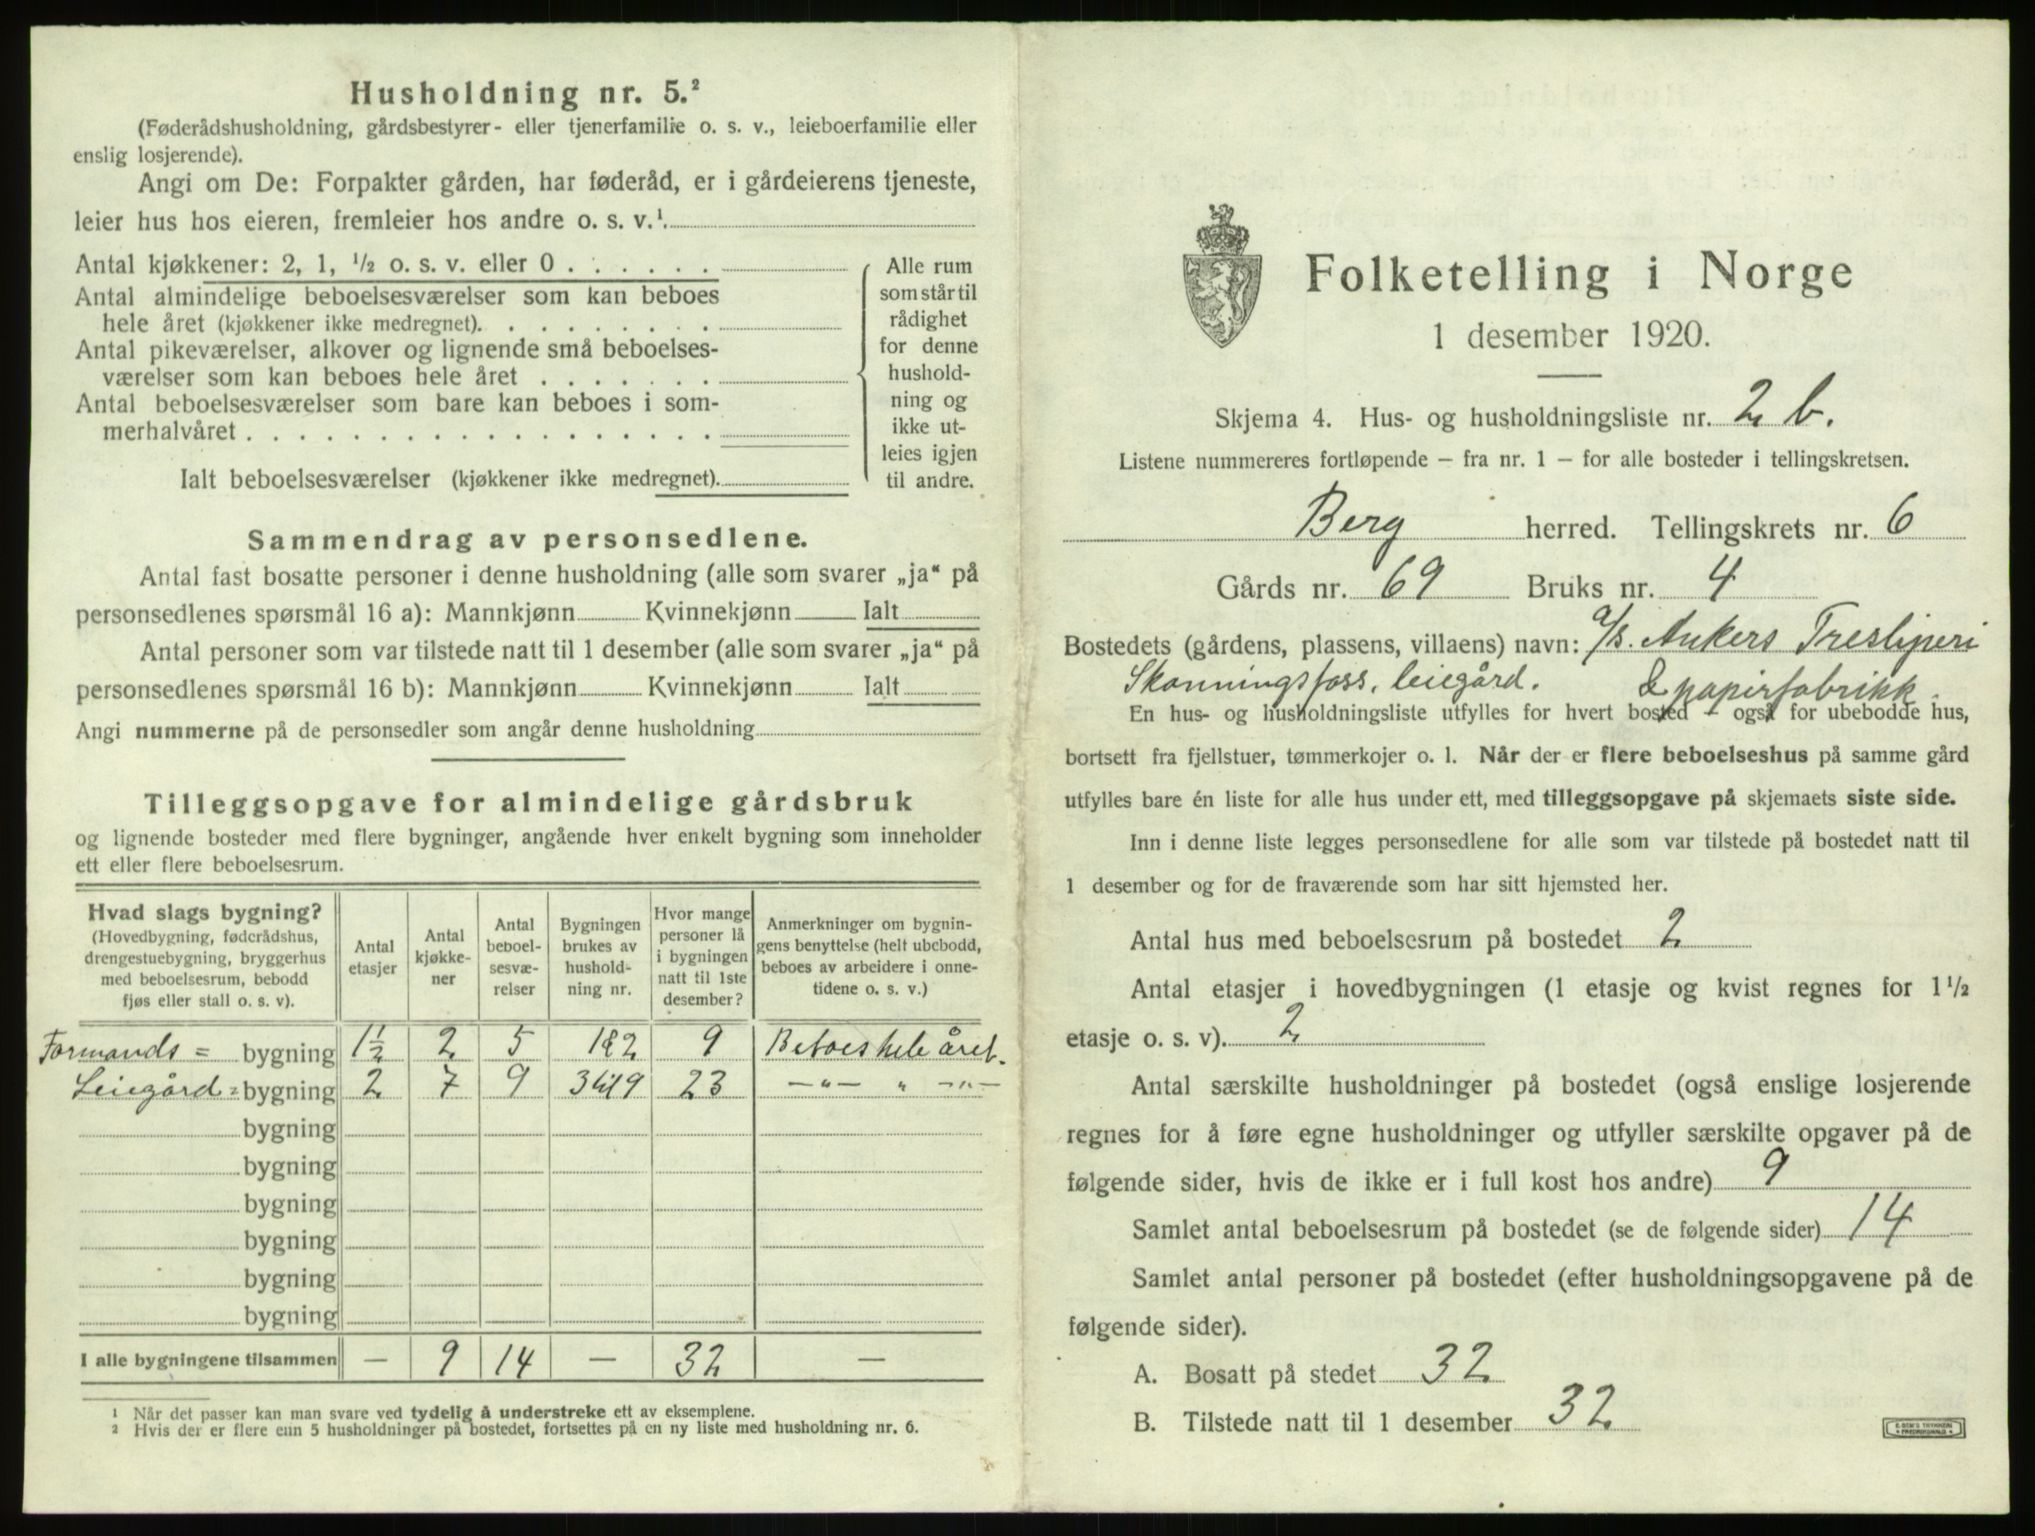 Husholdning nr. 5.²
(Føderådshusholdning, gårdsbestyrer- eller tjenerfamilie o. s. v., leieboerfamilie eller
enslig losjerende).
Angi om De: Forpakter gården, har føderåd, er i gårdeierens tjeneste,
leier hus hos eieren, fremleier hos andre o. s. v.¹.
Antal kjøkkener: 2, 1, ½ o. s. v. eller 0 . . . . . .
Antal almindelige beboelsesværelser som kan beboes
hele året (kjøkkener ikke medregnet). . . . . . . . .
Antal pikeværelser, alkover og lignende små beboelses-
værelser som kan beboes hele året . . . . . . .
Antal beboelsesværelser som bare kan beboes i som-
merhalvåret . . . . . . . . . . . . . . . . . .
Ialt beboelsesværelser (kjøkkener ikke medregnet).
Alle rum
som står til
rådighet
for denne
hushold-
ning og
ikke ut-
leies igjen
til andre.
Sammendrag av personsedlene.
Antal fast bosatte personer i denne husholdning (alle som svarer „ja“ på
personsedlenes spørsmål 16 a): Mannkjønn Kvinnekjønn Ialt
Antal personer som var tilstede natt til 1 desember (alle som svarer „ja“ på
personsedlenes spørsmål 16 b): Mannkjønn Kvinnekjønn Ialt
Angi nummerne på de personsedler som angår denne husholdning
Tilleggsopgave for almindelige gårdsbruk
og lignende bosteder med flere bygninger, angående hver enkelt bygning som inneholder
ett eller flere beboelsesrum.
Hvad slags bygning?
(Hovedbygning, føderådshus,
drengestuebygning, bryggerhus
med beboelsesrum, bebodd
fjøs eller stall o. s. v).
Antal
etasjer
Antal
kjøkke-
ner
Antal
beboel-
sesvæ-
relser
Bygningen
brukes av
hushold-
ning nr.
Hvor mange
personer lå
i bygningen
natt til 1ste
desember?
Anmerkninger om bygnin-
gens benyttelse (helt ubebodd,
beboes av arbeidere i onne-
tidene o. s. v.)
Formands = bygning 1½ 2 5 1&2 9 Beboes hele året.
Leiegård = bygning 2 7 9 3 til 9 23 — „ — „ — „ —
bygning
bygning
bygning
bygning
bygning
bygning
I alle bygningene tilsammen — 9 14 — 32 —
¹ Når det passer kan man svare ved tydelig å understreke ett av eksemplene.
² Hvis der er flere enn 5 husholdninger på bostedet, fortsettes på en ny liste med husholdning nr. 6.
Folketelling i Norge
1 desember 1920.
Skjema 4. Hus- og husholdningsliste nr. 2 b.
Listene nummereres fortløpende — fra nr. 1 — for alle bosteder i tellingskretsen.
Berg herred. Tellingskrets nr. 6
Gårds nr. 69 Bruks nr. 4
Bostedets (gårdens, plassens, villaens) navn: A/s. Ankers Tresliperi
Skonningsfoss, leiegård. & papirfabrikk.
En hus- og husholdningsliste utfylles for hvert bosted — også for ubebodde hus,
bortsett fra fjellstuer, tømmerkojer o. l. Når der er flere beboelseshus på samme gård
utfylles bare én liste for alle hus under ett, med tilleggsopgave på skjemaets siste side.
Inn i denne liste legges personsedlene for alle som var tilstede på bostedet natt til
1 desember og for de fraværende som har sitt hjemsted her.
Antal hus med beboelsesrum på bostedet 2
Antal etasjer i hovedbygningen (1 etasje og kvist regnes for 1½
etasje o. s. v). 2
Antal særskilte husholdninger på bostedet (også enslige losjerende
regnes for å føre egne husholdninger og utfyller særskilte opgaver på de
følgende sider, hvis de ikke er i full kost hos andre) 9
Samlet antal beboelsesrum på bostedet (se de følgende sider) 14
Samlet antal personer på bostedet (efter husholdningsopgavene på de
følgende sider).
A. Bosatt på stedet 32
B. Tilstede natt til 1 desember 32
E. SEM'S TRYKKERI
FREDRIKSHALD